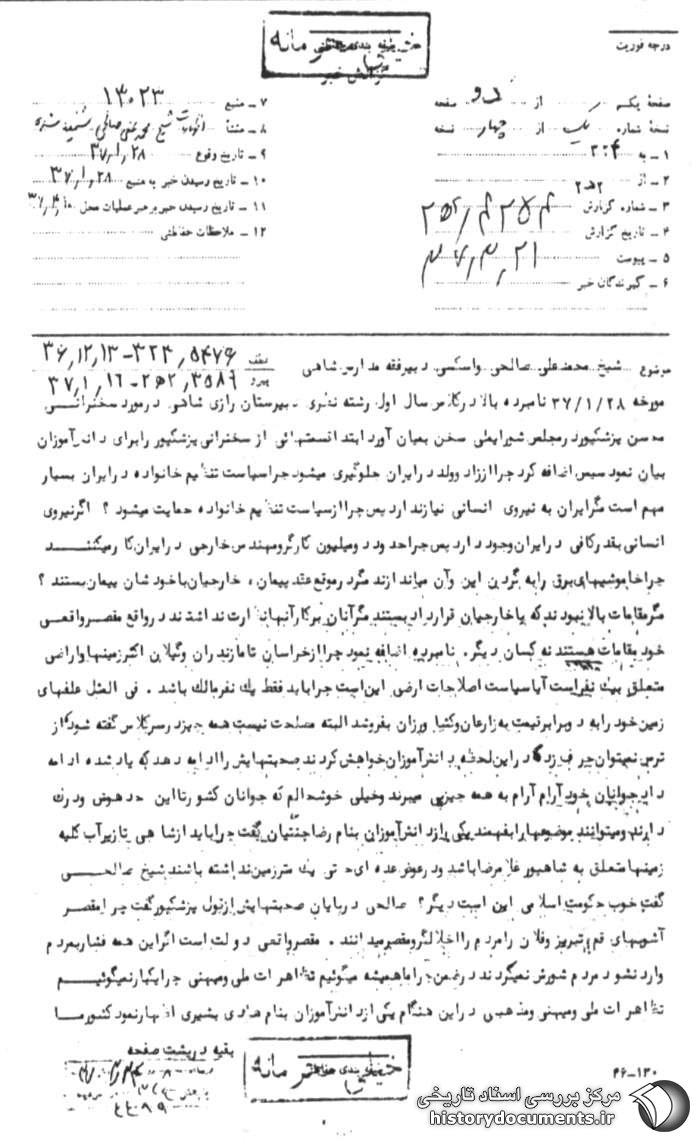 خیلی محرمانه
گزارش خبر
درجه فوریت
صفحهٔ یکم از دو صفحه
نسخهٔ شماره یک از چهار نسخه
۱ـ به ۳۲۴
۲ـ از ۲۵۲
۳ـ شماره گزارش
۴ـ تاریخ گزارش
۵ـ پیوست
۶ـ گیرندگان خبر
۷ـ منبع ۱۳۰۲۳
۸ـ منشأ اظهارات شیخ محمدعلی صالحی
۹ـ تاریخ وقوع ۳۷/۱/۲۸
۱۰ـ تاریخ رسیدن خبر به منبع ۳۷/۱/۲۸
۱۱ـ تاریخ رسیدن خبر به رهبر عملیات محل
۱۲ـ ملاحظات حفاظتی
موضوع شیخ محمدعلی صالحی واسکسی دبیر فقه مدارس شاهی
عطف ۵۴۷۶/۳۲۴-۳۶/۱۲/۱۳
پیرو ۳۵۸۹/۲۵۲-۳۷/۱/۱۶
مورخه ۳۷/۱/۲۸ نامبرده بالا در کلاس سال اول رشته نظری دبیرستان رازی شاهی در مورد سخنرانی
محسن پزشکپور در مجلس شورایملی سخن بمیان آورد ابتدا قسمتهائی از سخنرانی پزشکپور را برای دانش‌آموزان
بیان نمود سپس اضافه کرد چرا از زاد و ولد در ایران جلوگیری میشود چرا سیاست تنظیم خانواده در ایران بسیار
مهم است مگر ایران به نیروی انسانی نیاز ندارد پس چرا از سیاست تنظیم خانواده حمایت میشود ؟ اگر نیروی
انسانی بقدر کافی در ایران وجود دارد پس چرا حدود دو میلیون کارگر و مهندس خارجی در ایران کار میکنند
چرا خاموشیهای برق را به گردن این و آن میاندازند مگر در موقع عقد پیمان، خارجیان با خودشان پیمان بستند ؟
مگر مقامات بالا نبودند که با خارجیان قرارداد بستند مگر آنان بر کار آنها نظارت نداشتند در واقع مقصر واقعی
خود مقامات هستند نه کسان دیگر. نامبرده اضافه نمود چرا از خراسان تا مازندران و گیلان اکثر زمینها و اراضی
متعلق بیک نفر است آیا سیاست اصلاحات ارضی این است چرا باید فقط یک نفر مالک باشد . فی المثل علفهای
زمین خود را به دو برابر قیمت به زارعان و کشاورزان بفروشد البته مصلحت نیست همه چیز در سر کلاس گفته شود از
ترس نمیتوان حرف زد در این لحظه دانش‌آموزان خواهش کردند صحبتهایش را ادامه دهد که یاد شده ادامه
داد جوانان خود آرام آرام به همه چیز پی میبرند و خیلی خوشحالم که جوانان کشور تا این حد هوش و درک
دارند و میتوانند موضوعها را بفهمند یکی از دانش‌آموزان بنام رضا گفت چرا باید از شاهی تا زیرآب کلیه
زمینها متعلق به شاهپور غلامرضا باشد و در عوض عده ای حتی یک متر زمین نداشته باشند شیخ صالحی
گفت خوب حکومت اسلامی این است دیگر؟ صالحی در پایان صحبتهایش از قول پزشکپور گفت چرا مقصر
آشوبهای قم و تبریز و فلان را مردم را اخلالگر و مقصر میدانند . مقصر واقعی دولت است اگر این همه فشار بمردم
وارد نشود مردم شورش نمیکردند در ضمن چرا ما همیشه میگوئیم تظاهرات ملی و میهنی چرا یکبار نمیگوئیم
تظاهرات ملی و میهنی و مذهبی در این هنگام یکی از دانش‌آموزان بنام هادی بشیری اظهار نمود کشور ما
بقیه در پشت صفحه
خیلی محرمانه
۴۶-۱۳۰
مرکز بررسی اسناد تاریخی
historydocuments.ir